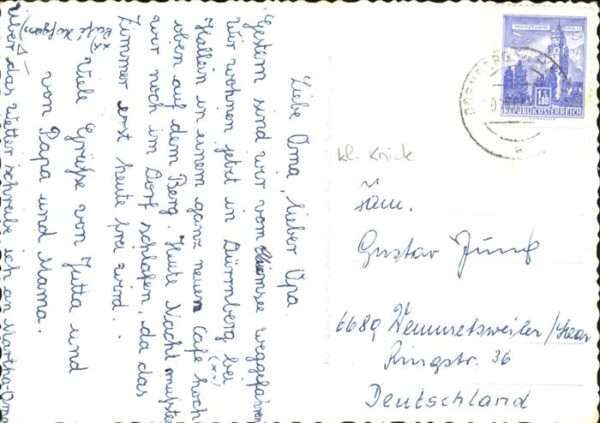 Liebe Oma, lieber Opa.
Gestern sind wir vom Chiemsee weggefahren
Wir wohnen jetzt in Dürrnberg bei
Hallein in einem ganz neuen Cafe hoch (xx)
oben auf dem Berg. Heute Nacht mußten
wir noch im Dorf schlafen, da das
Zimmer erst heute frei wird.
Viele Grüße von Jutta und
von Papa und Mama.
Über das Wetter schreibe ich an Martha-Oma
xx Café
REPUBLIK ÖSTERREICH
1.80
kl. Knick
Fam.
Gustav Jung
6689 Wemmetsweiler/Saar
Ringstr. 36
Deutschland